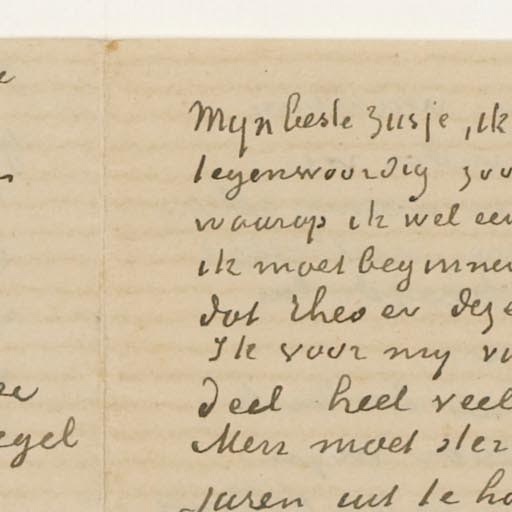 Mijn beste zusje, ik
tegenwoordig
waarop ik wel een
ik moet beginnen
dat Theo er deze
Ik voor mij
deel heel veel
Men moet
egel
jaren uit te ho